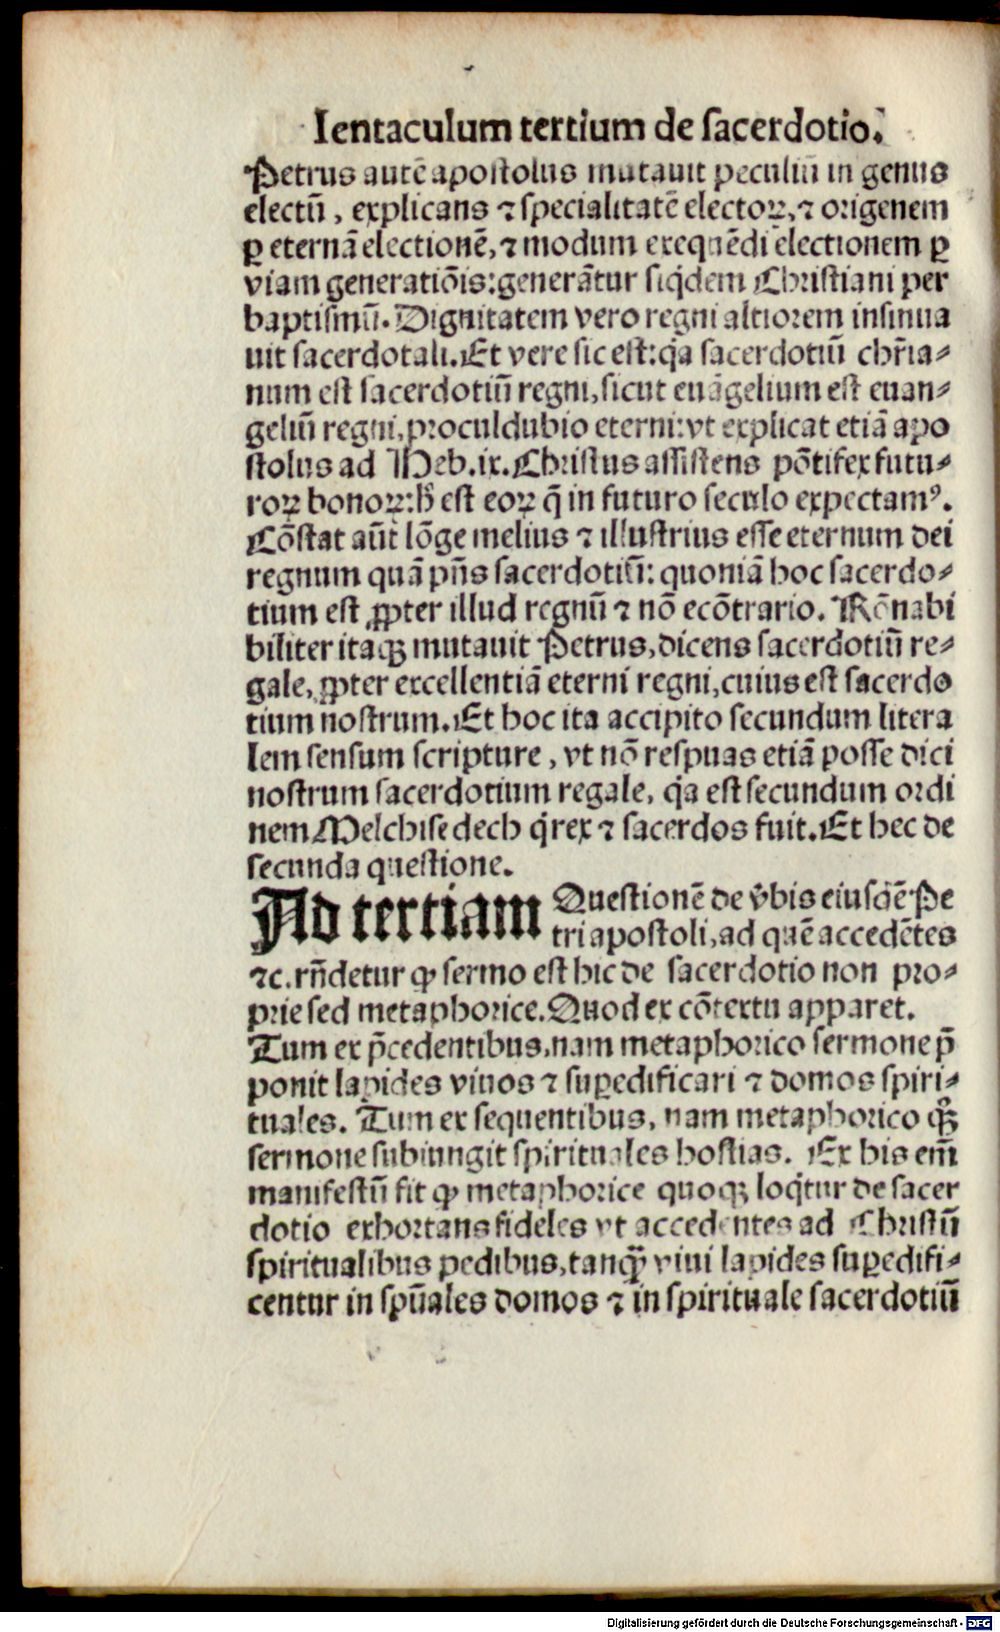 Ientaculum tertium de sacerdotio.
Petrus autē apostolus mutauit peculiū in genus
electū, explicans ⁊ specialitatē electoꝝ, ⁊ origenem
ꝑ eternā electionē, ⁊ modum exequēdi electionem ꝑ
viam generatiōis: generātur siq̇dem Christiani per
baptismū. Dignitatem vero regni altiorem insinua
uit sacerdotali. Et vere sic est: q̇a sacerdotiū chr̄ia⸗
num est sacerdotiū regni, sicut euāgelium est euan⸗
geliū regni, proculdubio eterni: vt explicat etiā apo
stolus ad Heb. ix. Christus assistens pōtifex futu⸗
roꝝ bonoꝝ: h̄ est eoꝝ q̄ in futuro seculo expectamꝰ.
Cōstat aūt lōge melius ⁊ illustrius esse eternum dei
regnum quā pn̄s sacerdotiū: quoniā hoc sacerdo⸗
tium est ꝓpter illud regnū ⁊ nō ecōtrario. Rōnabi
biliter itaqꝫ mutauit Petrus, dicens sacerdotiū re⸗
gale, ꝓpter excellentiā eterni regni, cuius est sacerdo
tium nostrum. Et hoc ita accipito secundum litera
lem sensum scripture, vt nō respuas etiā posse dici
nostrum sacerdotium regale, q̇a est secundum ordi
nem Melchisedech q̇ rex ⁊ sacerdos fuit. Et hec de
secunda questione.
Ad tertiam Questionē de v̄bis eiusdē Pe
tri apostoli, ad quē accedētes
⁊c. rn̄detur ꝙ sermo est hic de sacerdotio non pro⸗
prie sed metaphorice. Quod ex cōtextu apparet.
Tum ex p̄cedentibus, nam metaphorico sermone p̄
ponit lapides viuos ⁊ suꝑedificari ⁊ domos spiri⸗
tuales. Tum ex sequentibus, nam metaphorico qꝫ
sermone subiungit spirituales hostias. Ex his em̄
manifestū fit ꝙ metaphorice quoqꝫ loq̇tur de sacer
dotio exhortans fideles vt accedentes ad Christū
spiritualibus pedibus, tanꝙ̄ viui lapides suꝑedifi⸗
centur in spūales domos ⁊ in spirituale sacerdotiū
Digitalisierung gefördert durch die Deutsche Forschungsgemeinschaft - DFG